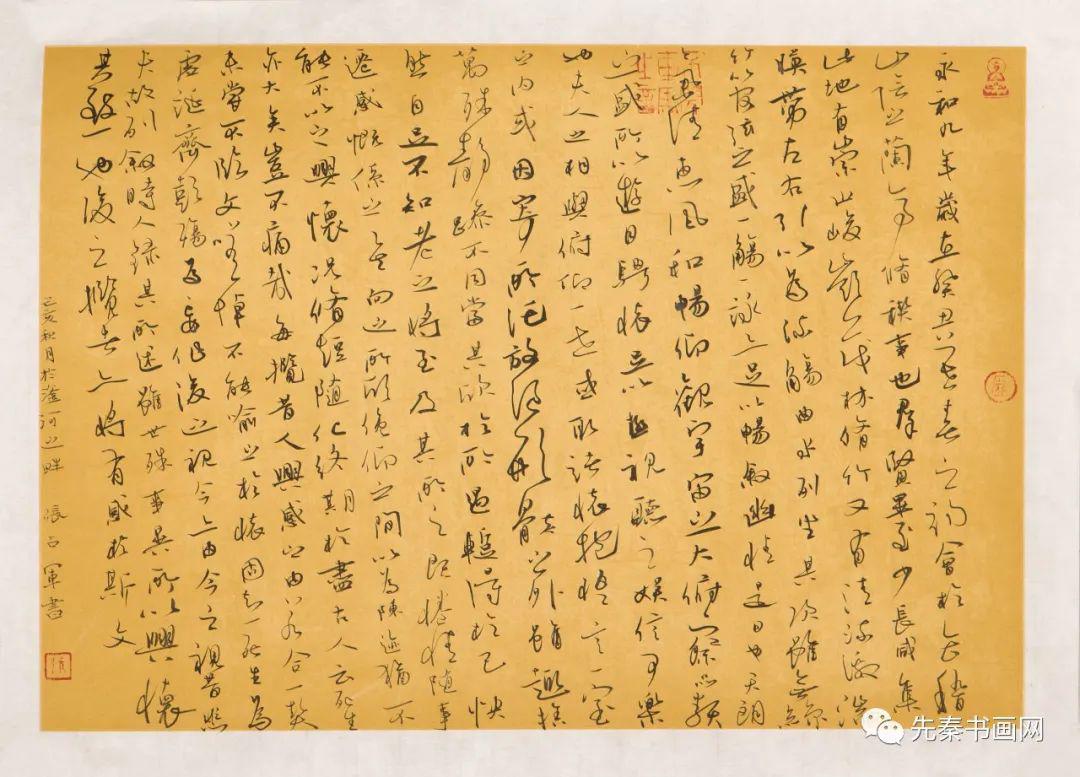 永和九年歲在癸丑暮春之初會於會稽
山陰之蘭亭脩禊事也群賢畢至少長咸集
此地有崇山峻嶺茂林脩竹又有清流激湍
暎帶左右引以為流觴曲水列坐其次雖無絲
竹管弦之盛一觴一詠亦足以暢敘幽情是日也天朗
氣清惠風和暢仰觀宇宙之大俯察品類
之盛所以遊目騁懷足以極視聽之娛信可樂
也夫人之相與俯仰一世或取諸懷抱悟言一室
之內或因寄所託放浪形骸之外雖趣捨
萬殊靜躁不同當其欣於所遇暫得於己快
然自足不知老之將至及其所之既惓情隨事
遷感慨係之矣向之所欣俛仰之間以為陳迹猶不
能不以之興懷況脩短隨化終期於盡古人云死生
亦大矣豈不痛哉每攬昔人興感之由若合一契
未嘗不臨文嗟悼不能喻之於懷固知一死生為
虛誕齊彭殤為妄作後之視今亦由今之視昔悲
夫故列敘時人錄其所述雖世殊事異所以興懷
其致一也後之攬者亦將有感於斯文
己亥秋月於滏河之畔 張占軍書
先秦书画网